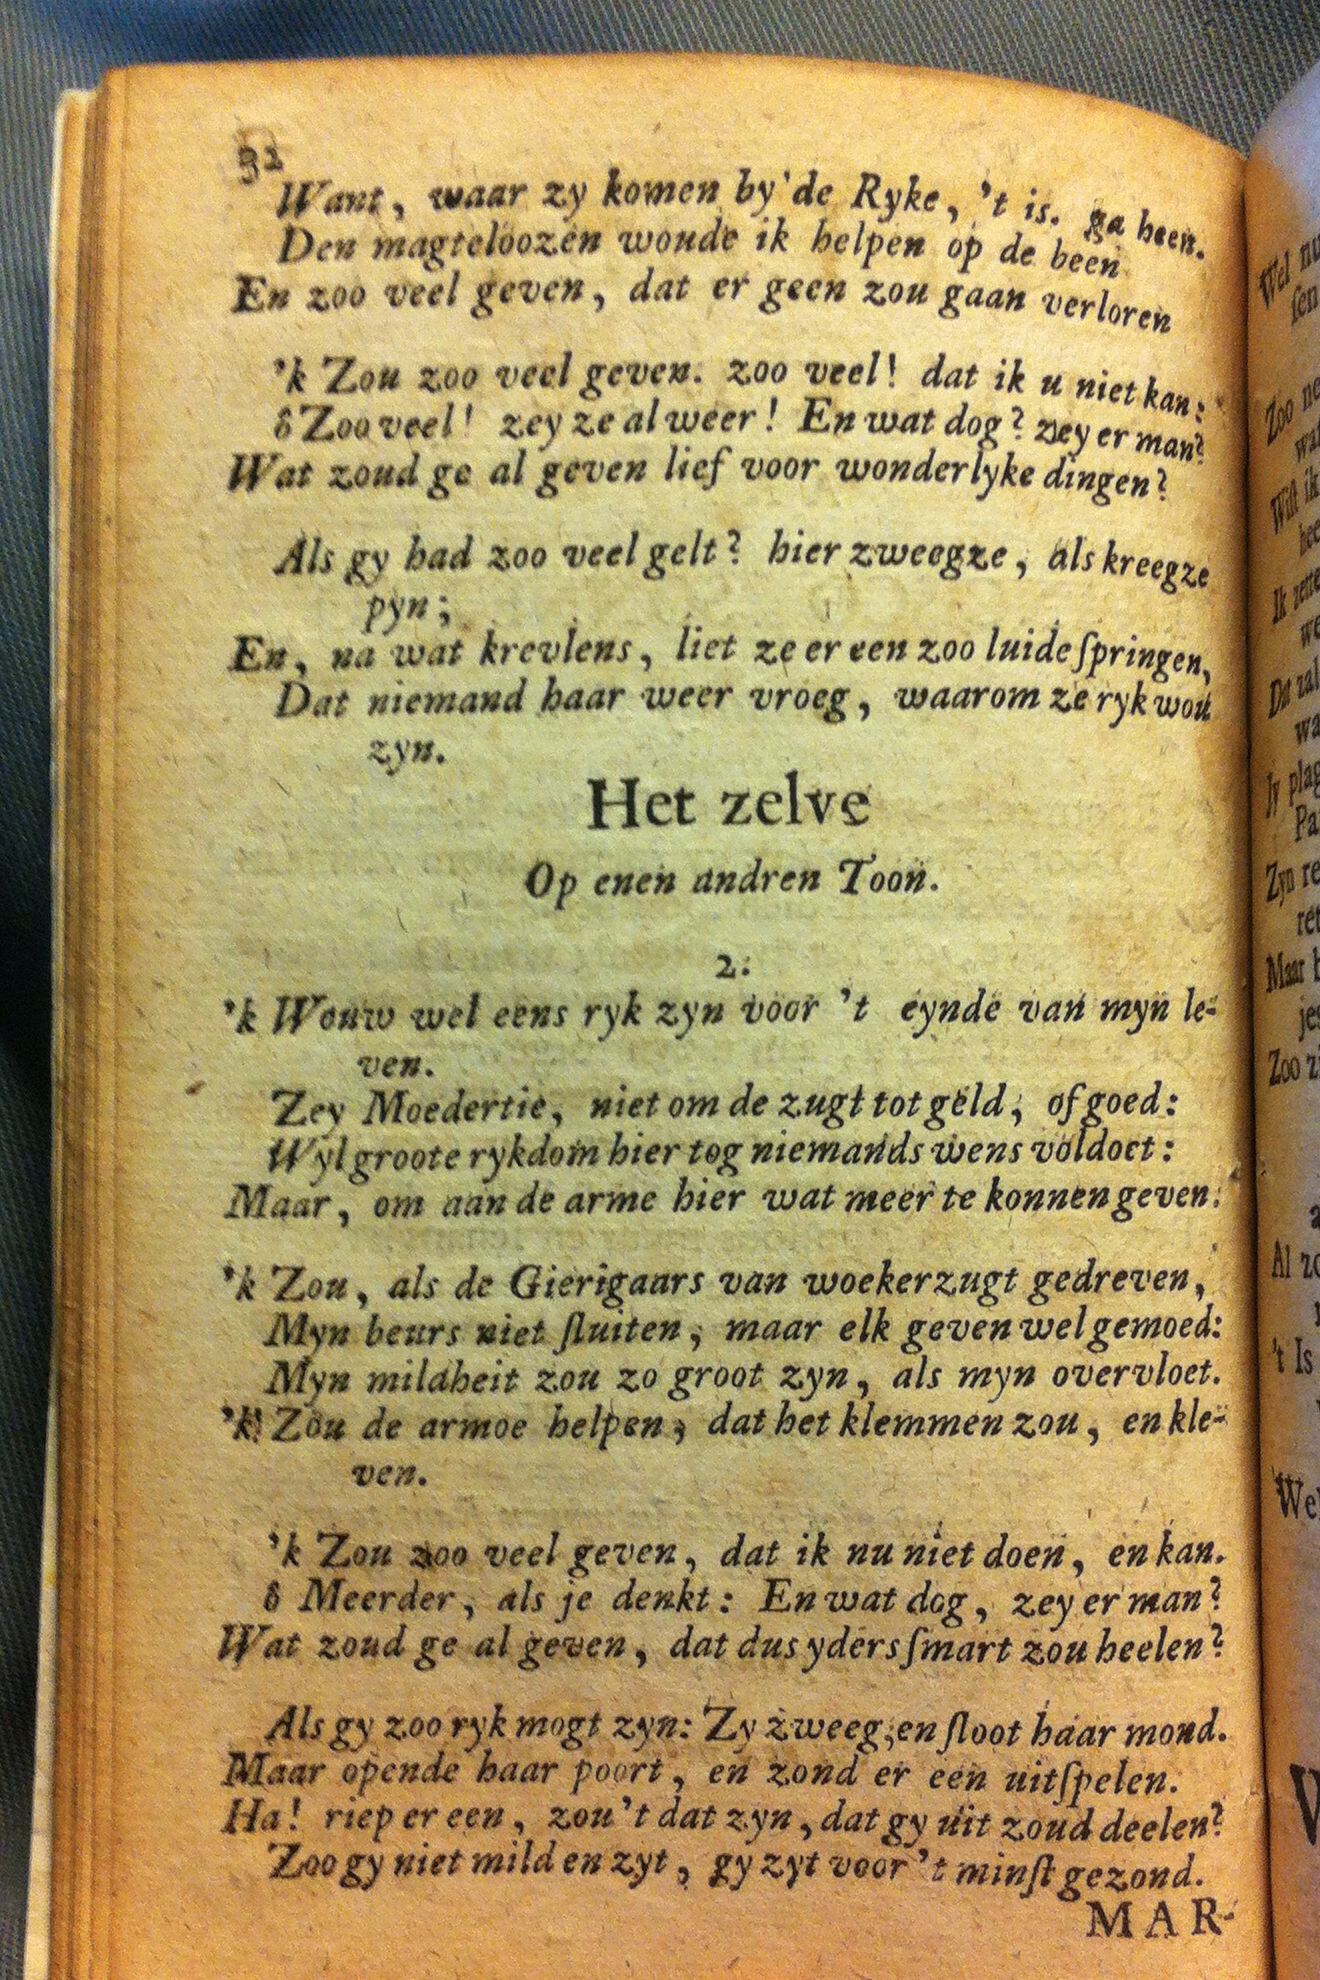 32
Want, waar zy komen by de Ryke, 't is. ga heen.
Den magteloozen woude ik helpen op de been
En zoo veel geven, dat er geen zou gaan verloren
'k Zou zoo veel geven. zoo veel! dat ik u niet kan:
ô Zoo veel! zey ze al weer! En wat dog? zey er man?
Wat zoud ge al geven lief voor wonderlyke dingen?
Als gy had zoo veel gelt? hier zweegze, als kreegze
pyn;
En, na wat krevlens, liet ze er een zoo luide ſpringen,
Dat niemand haar weer vroeg, waarom ze ryk wou
zyn.
Het zelve
Op enen andren Toon.
2.
'k Wouw wel eens ryk zyn voor 't eynde van myn le-
ven.
Zey Moedertie, niet om de zugt tot geld, of goed:
Wyl groote rykdom hier tog niemands wens voldoet:
Maar, om aan de arme hier wat meer te konnen geven.
'k Zou, als de Gierigaars van woekerzugt gedreven,
Myn beurs niet ſluiten, maar elk geven wel gemoed:
Myn mildheit zou zo groot zyn, als myn overvloet.
'k Zou de armoe helpen, dat het klemmen zou, en kle-
ven.
'k Zou zoo veel geven, dat ik nu niet doen, en kan.
ô Meerder, als je denkt: En wat dog, zey er man?
Wat zoud ge al geven, dat dus yders ſmart zou heelen?
Als gy zoo ryk mogt zyn: Zy zweeg, en ſloot haar mond.
Maar opende haar poort, en zond er een uitſpelen.
Ha! riep er een, zou 't dat zyn, dat gy uit zoud deelen?
Zoo gy niet mild en zyt, gy zyt voor 't minſt gezond.
MAR-